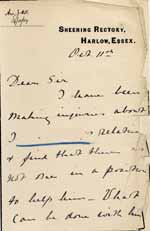 SHEERING RECTORY,
HARLOW, ESSEX.
Oct 11th
Dear Sir
I have been
making inquiries about
relations
& find that there is
not one in a position
to help him – What
can be done with him